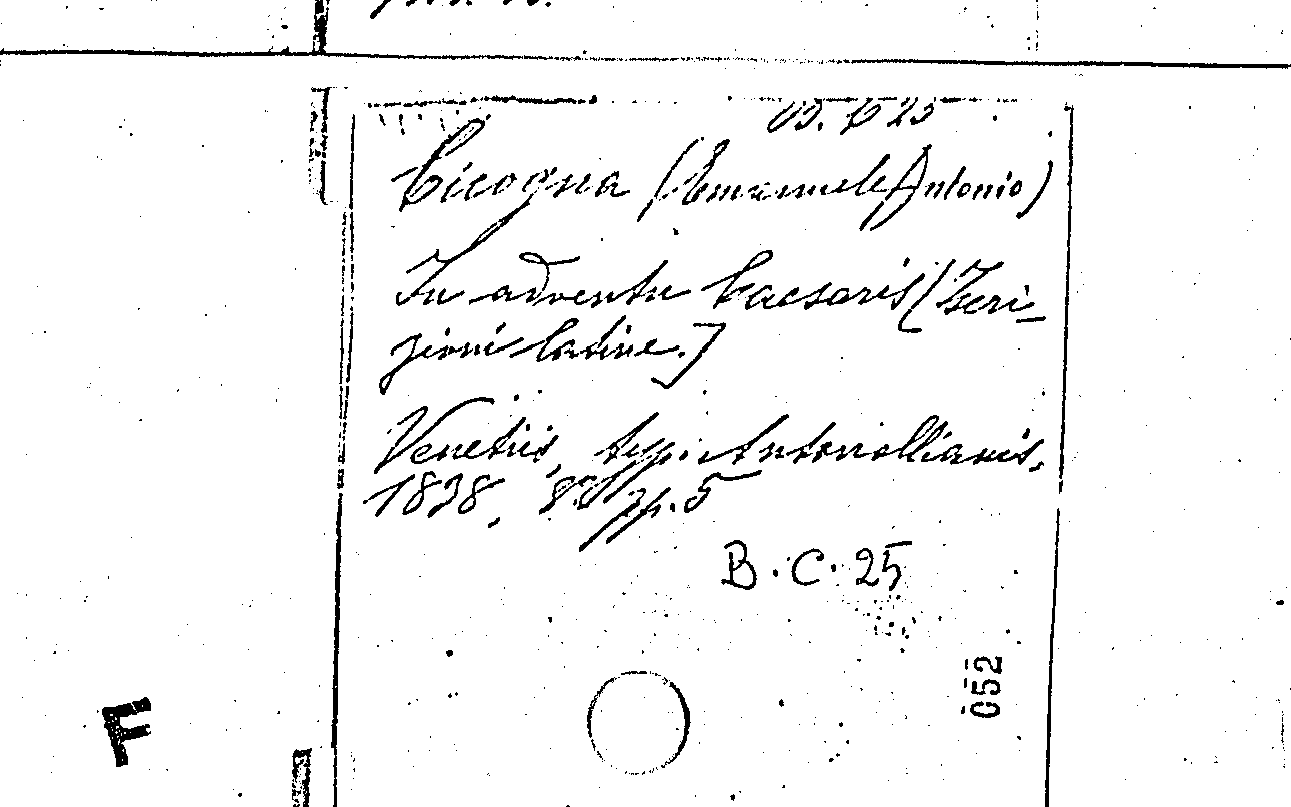 B. C 25
Cicogna (Emanuele Antonio)
In adventu Caesaris [Iscri-
zioni latine.]
Venetiis, typ. Antonellianis,
1838, 8º pp. 5
B. C. 25
052
F